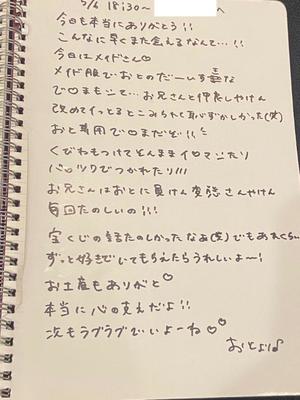 7/6 18:30~
今日も本当にありがとう!!
こんなに早くまた会えるなんて…!!
今日はメイドさん♡
メイド服でおとのだーいすきな
で♡まもって…お兄さんと仲良しやけん
改めてイっとるとこみられて恥ずかしかった(笑)
おと専用で♡まだぞ!!
くびわもつけてそんままイ♡マ♡たり
バ♡ックでつかれたり!!!
お兄さんはおとに負けん変態さんやけん
毎回たのしいの!!!
宝くじの話たのしかったなぁ(笑)でもあれくらい
ずっと好きでいてもらえたらうれしいよ〜!
お土産もありがと♡
本当に心の支えだよ!!
次もラブラブでいよーね♡♡
おとより♪